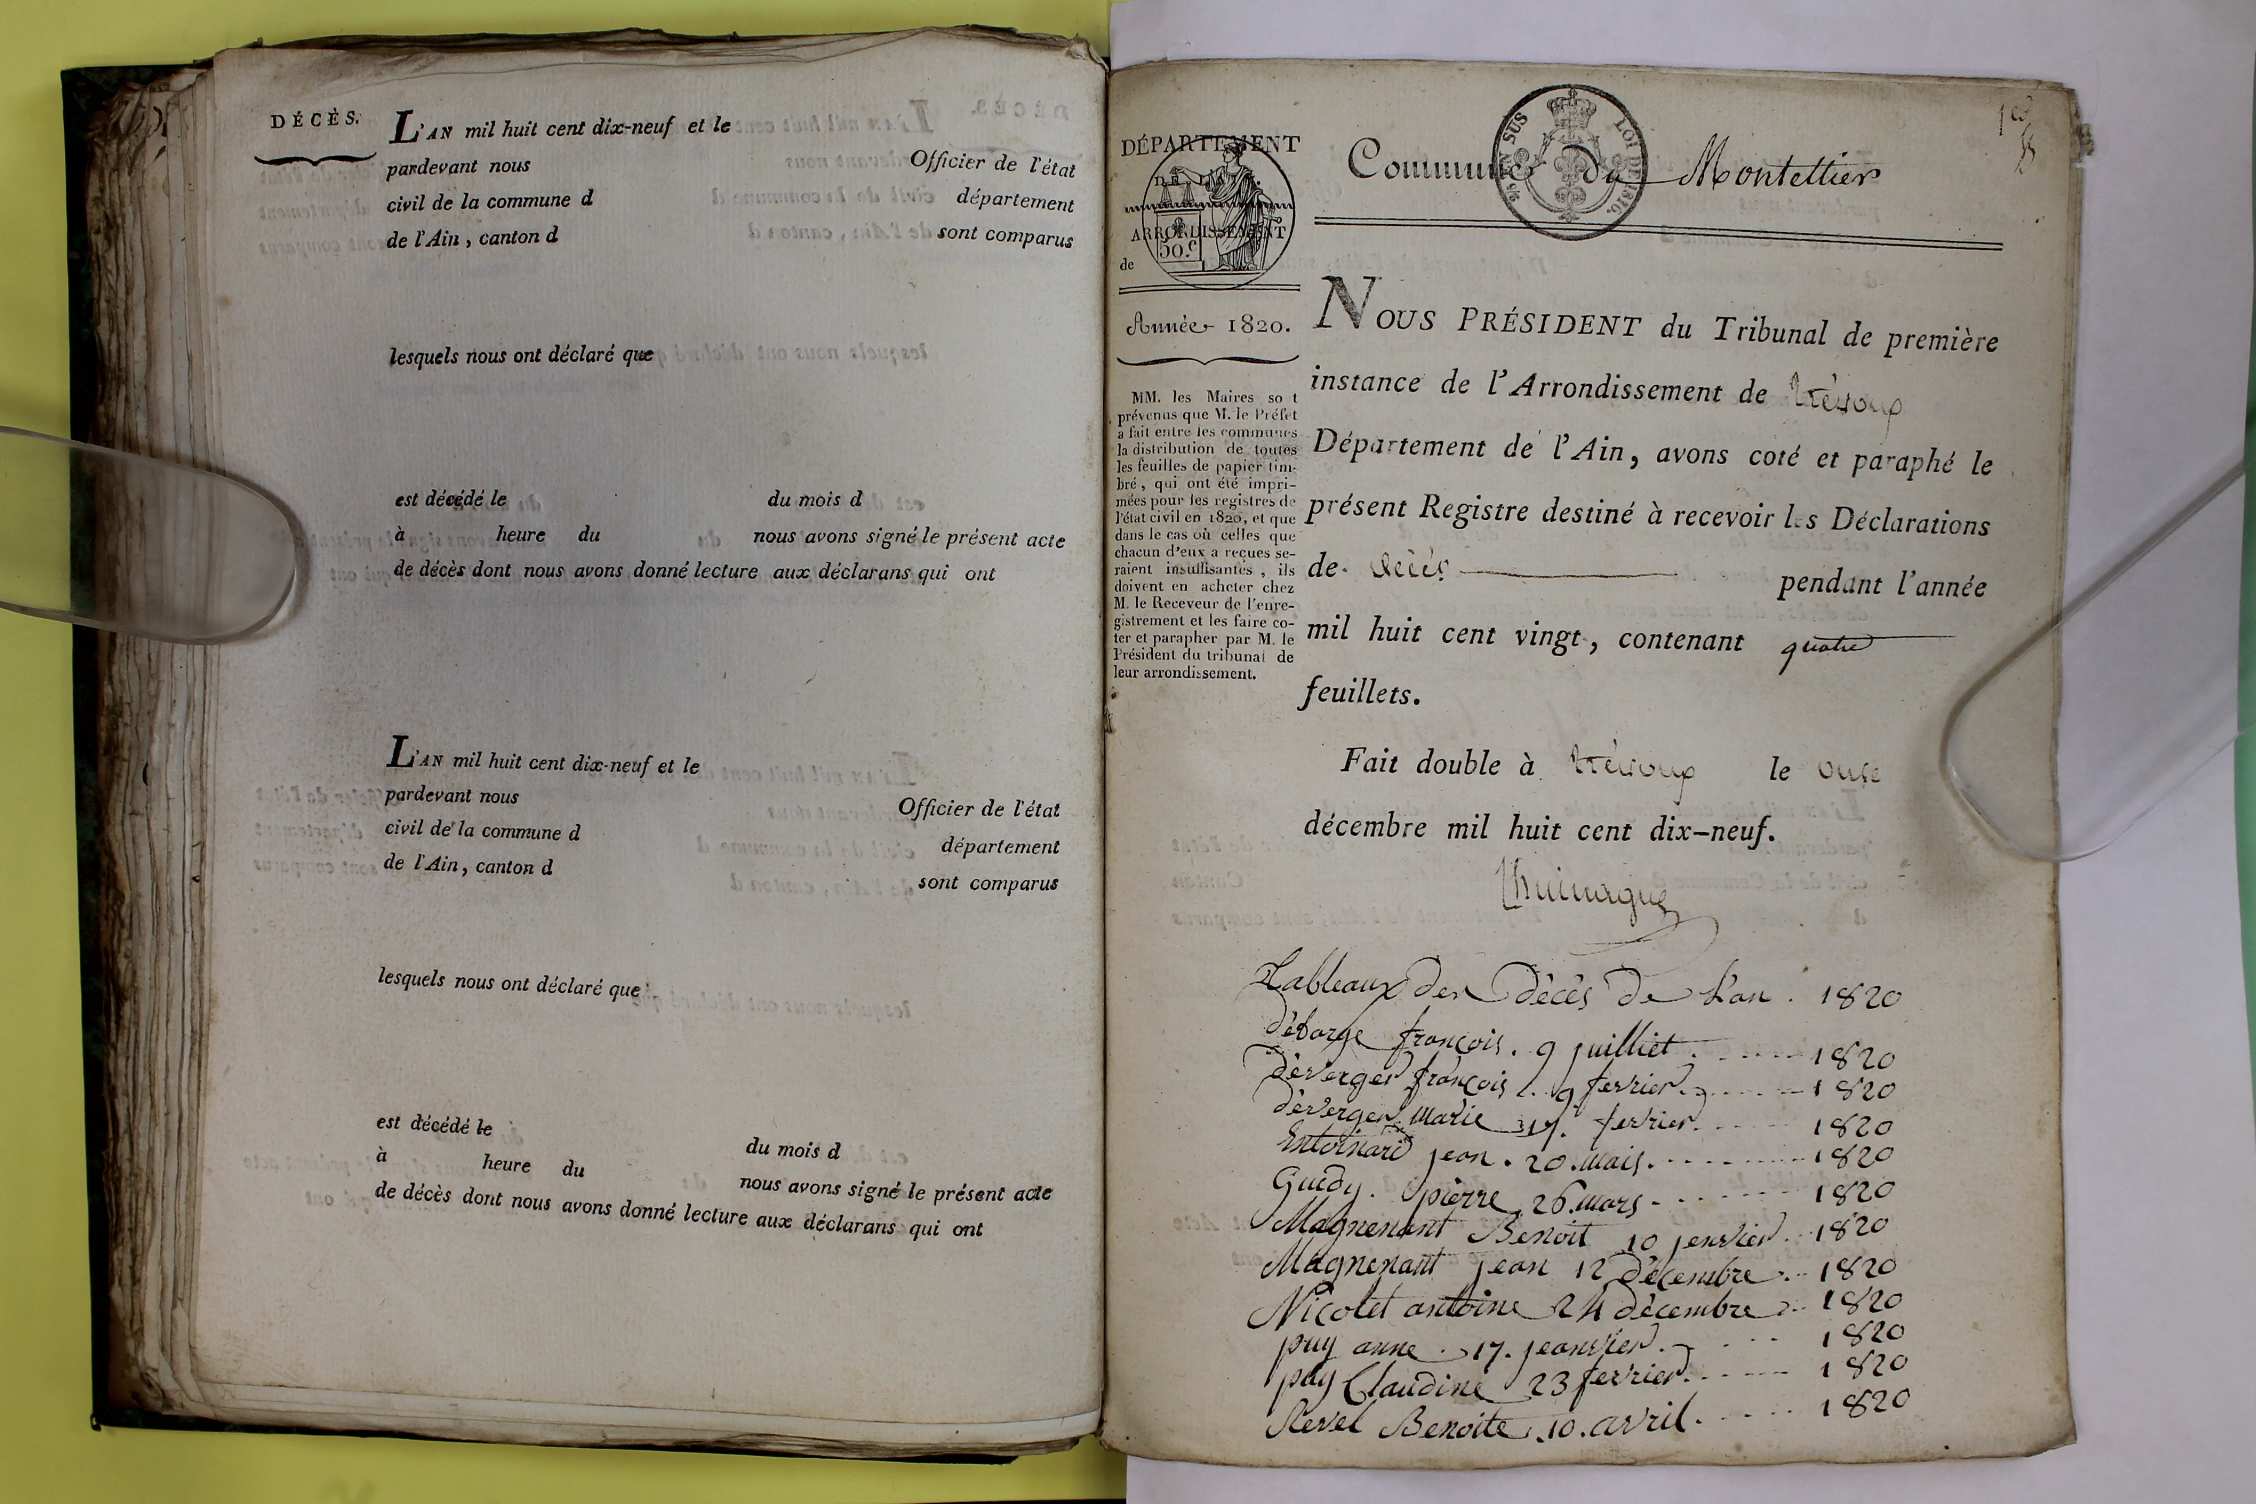 DÉCÈS.
L'AN mil huit cent dix-neuf et le
pardevant nous Officier de l'état
civil de la commune d département
de l'Ain, canton d sont comparus
lesquels nous ont déclaré que
est décédé le du mois d
à heure du nous avons signé le présent acte
de décès dont nous avons donné lecture aux déclarans qui ont
L'AN mil huit cent dix-neuf et le
pardevant nous Officier de l'état
civil de la commune d département
de l'Ain, canton d sont comparus
lesquels nous ont déclaré que
est décédé le du mois d
à heure du nous avons signé le présent acte
de décès dont nous avons donné lecture aux déclarans qui ont
DÉPARTEMENT
DE
ARRONDISSEMENT
50.c
de
Année 1820.
MM. les Maires so t
prévenus que M. le Préfet
a fait entre les communes
la distribution de toutes
les feuilles de papier tim-
bré, qui ont été impri-
mées pour les registres de
l'état civil en 1820, et que
dans le cas où celles que
chacun d'eux a reçues se-
raient insuffisantes, ils
doivent en acheter chez
M. le Receveur de l'enre-
gistrement et les faire co-
ter et parapher par M. le
Président du tribunal de
leur arrondissement.
EN SUS
LOI DE 1816.
Commune du Montellier
NOUS PRÉSIDENT du Tribunal de première
instance de l'Arrondissement de Trévoux
Département de l'Ain, avons coté et paraphé le
présent Registre destiné à recevoir les Déclarations
de décès pendant l'année
mil huit cent vingt, contenant quatre
feuillets.
Fait double à Trévoux le onze
décembre mil huit cent dix-neuf.
Tableaux des Décès De L'an. 1820
déborge françois. 9 juilliet. 1820
Déverger françois. 9. fevrier. 1820
déverger marie 17. fevrier. 1820
Entoinard jean. 20. mais. 1820
Guedy. pierre. 26. mars 1820
Magnenant Benoit 10 jenvier. 1820
Magnenant jean 12 Décembre. 1820
Nicolet antoine 24 décembre 1820
puy anne. 17. jeanvier. 1820
puy Claudine 23 fevrier. 1820
Revel Benoite. 10. avril. 1820